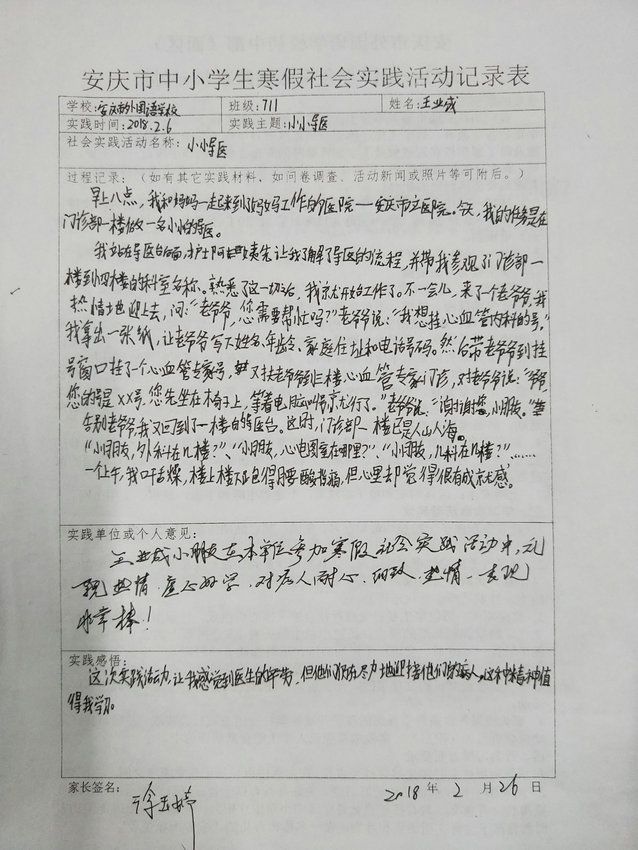 安庆市中小学生寒假社会实践活动记录表
学校:安庆市外国语学校 班级:711 姓名:王业成
实践时间:2018.2.6 实践主题:小小导医
社会实践活动名称: 小小导医
过程记录:（如有其它实践材料，如问卷调查、活动新闻或照片等可附后。）
早上八点，我和妈妈一起来到了妈妈工作的医院——安庆市立医院。今天，我的任务是在
门诊部一楼做一名小小的导医。
我站在导医台后面，护士阿姨首先让我了解了导医的流程，并带我参观了门诊部一
楼到四楼的科室名称。熟悉了这一切后，我就开始工作了。不一会儿，来了个老爷爷，我
热情地迎上去，问：“老爷爷，您需要帮忙吗？”老爷爷说：“我想挂心血管内科的号。”
我拿出一张纸，让老爷爷写下姓名、年龄、家庭住址和电话号码。然后带老爷爷到挂
号窗口挂了个心血管专家号，又扶老爷爷到三楼心血管专家门诊，对老爷爷说：“爷爷，
您的号是XX号，您先坐在椅子上，等着电脑叫号就行了。”老爷爷说：“谢谢，小朋友。”
告别老爷爷，我又回到了一楼的导医台。这时，门诊部一楼已是人山人海。
“小朋友，外科在几楼？”、“小朋友，心电图室在哪里？”、“小朋友，儿科在几楼？”……
一个上午，我口干舌燥，楼上楼下跑得腰酸背痛，但心里却觉得很有成就感。
实践单位或个人意见:
王业成小朋友在本单位参加寒假社会实践活动中，礼
貌热情，虚心好学，对病人耐心、细致、热情，表现
非常棒！
实践感悟:
这次实践活动，让我感觉到医生的辛劳，但他们仍在尽力地迎接他们的病人，这种精神值
得我学习。
家长签名: 2018 年 2 月 26 日